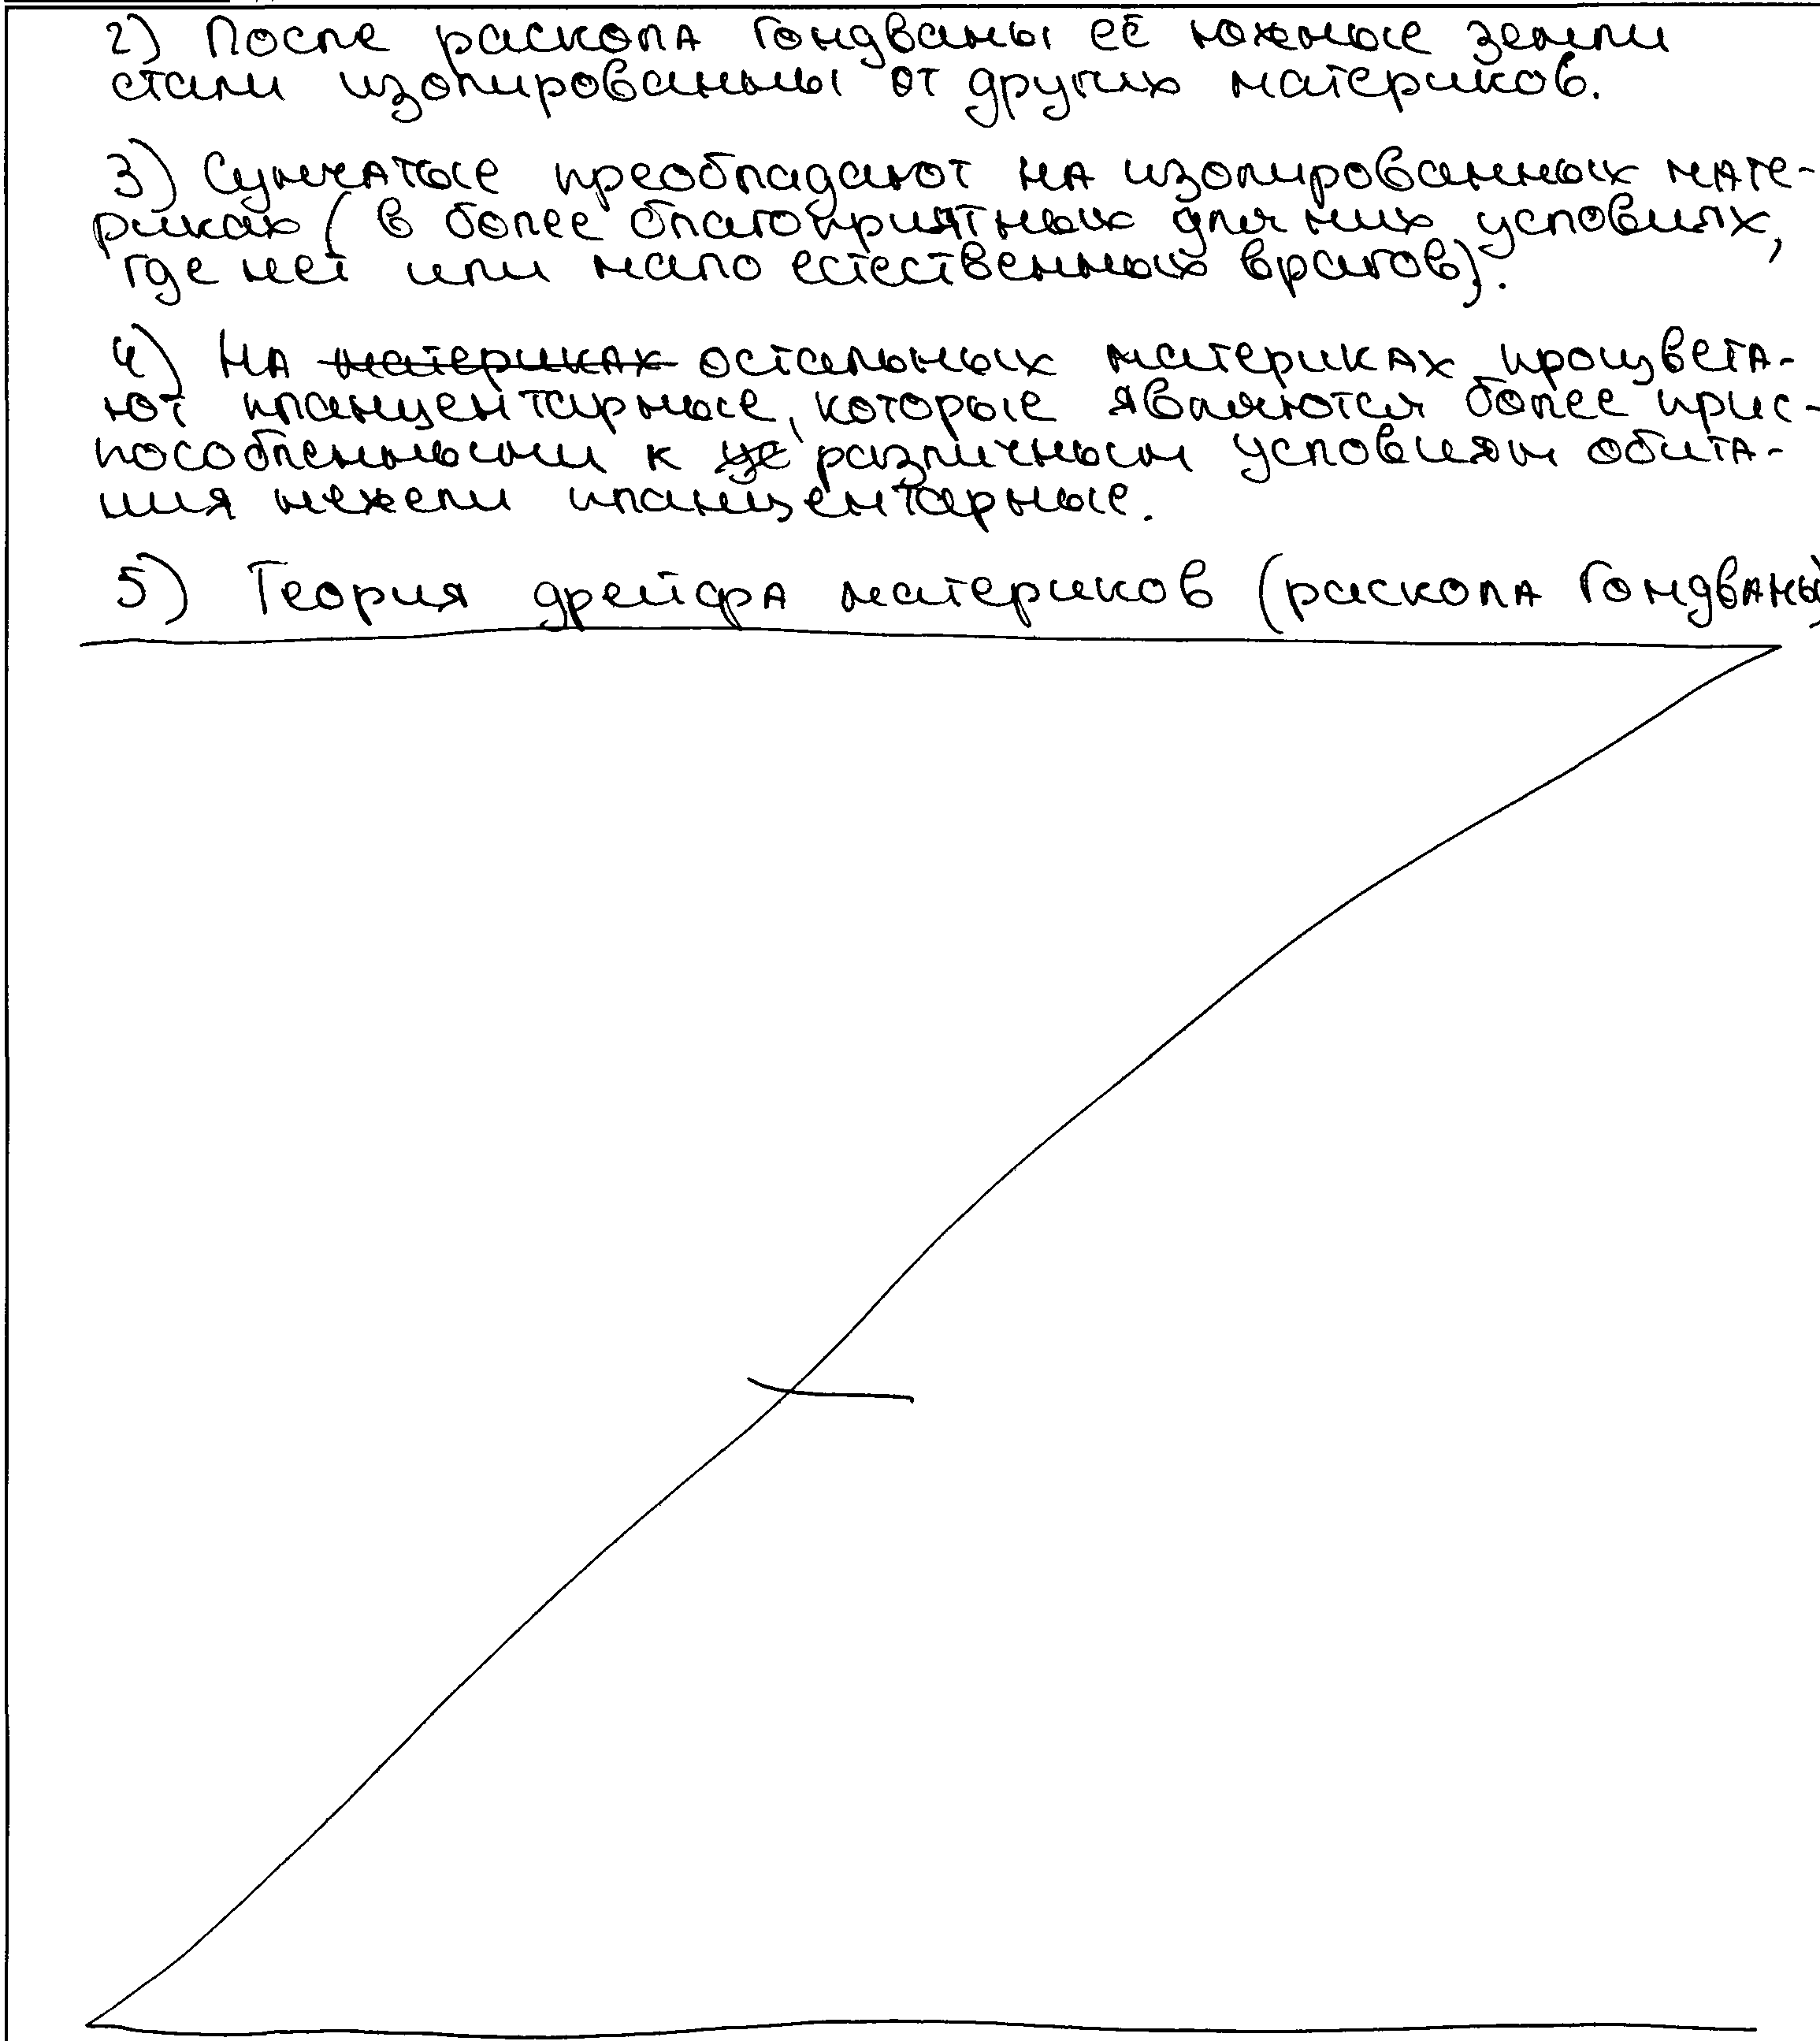 2) После раскола Гондваны её южные земли
стали изолированны от других материков.
3) Сумчатые преобладают на изолированных мате-
риках (в более благоприятных для них условиях,
где нет или мало естественных врагов).
4) На материках остальных материках процвета-
ют планцентарные, которые являются более прис-
пособленными к различным условиям обита-
ния нежели планцентарные.
5) Теория дрейфа материков (раскола Гондваны)